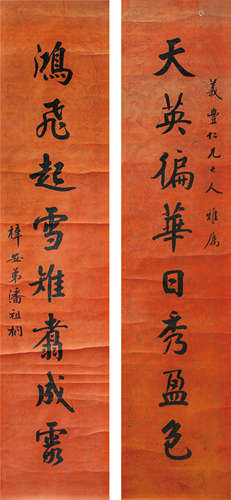 天英徧華日秀盈色
義豐仁兄大人雅屬
鴻飛起雪雉翥成霞
弟潘祖桐